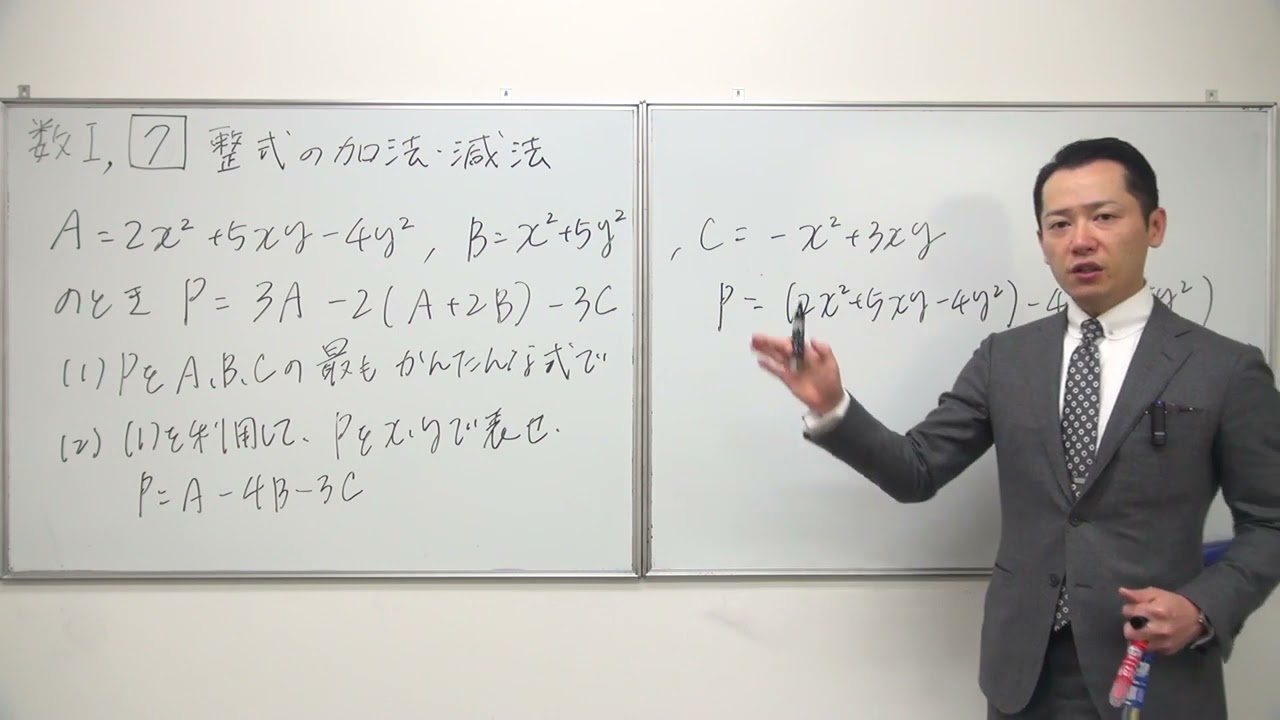 数I, 7 整式の加法・減法
A = 2x² + 5xy - 4y², B = x² + 5y², C = -x² + 3xy
のとき P = 3A - 2(A + 2B) - 3C
(1) PをA、B、Cの最もかんたんな式で
(2) (1)を利用して、Pをx、yで表せ.
P = A - 4B - 3C
P = (2x² + 5xy - 4y²) - 4 y²)